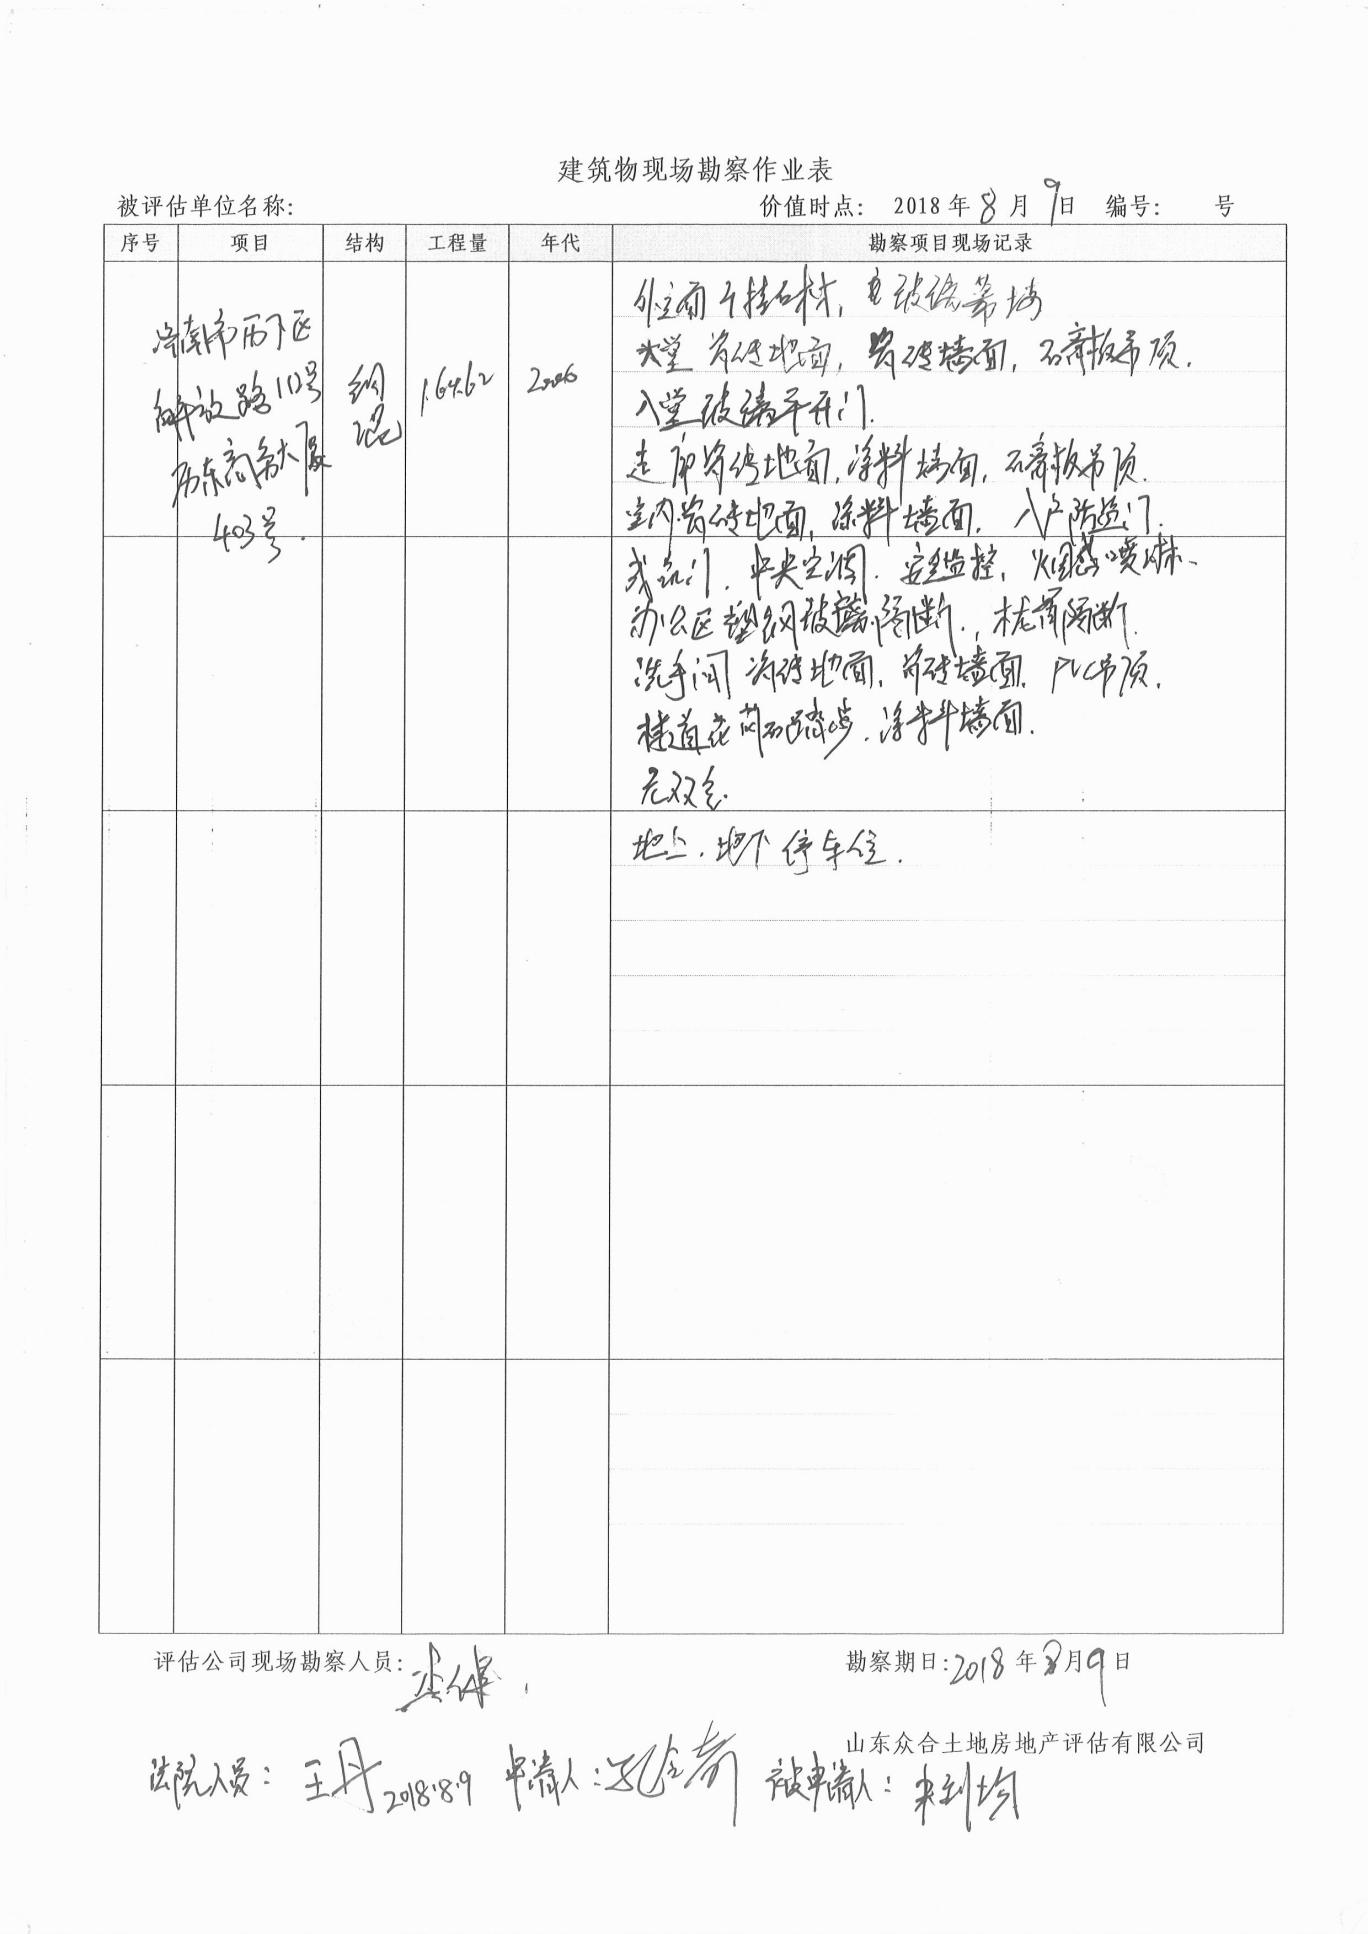 建筑物现场勘察作业表
被评估单位名称: 价值时点: 2018年8月9日 编号: 号
序号 项目 结构 工程量 年代 勘察项目现场记录
济南市历下区
解放路112号
历东商务大厦
403号.
钢
混
1646.2
2006
外立面干挂石材, 玻璃幕墙
大堂瓷砖地面, 瓷砖墙面, 石膏板吊顶.
入堂玻璃平开门.
走廊瓷砖地面, 涂料墙面, 石膏板吊顶.
室内瓷砖地面, 涂料墙面. 入户防盗门.
中央空调. 安全监控, 烟感喷淋、
办公区塑钢玻璃隔断., 隔断.
洗手间瓷砖地面, 瓷砖墙面. PVC吊顶.
楼道花岗石踏步. 涂料墙面.
地上. 地下停车位.
评估公司现场勘察人员: 勘察期日:2018年8月9日
山东众合土地房地产评估有限公司
法院人员: 王丹 2018.8.9 申请人: 被申请人: